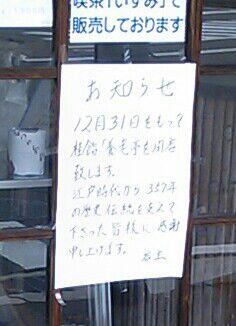 喫茶「いずみ」で
販売しております
お知らせ
12月31日をもって
桂飴「養老亭を閉店
致します。
江戸時代から357年
の歴史伝統を支えて
下さった皆様に感謝
申し上げます。
店主